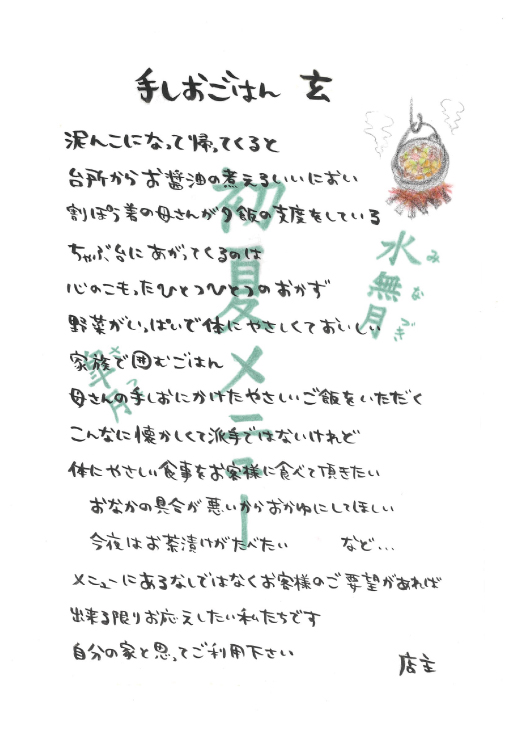 手しおごはん 玄
泥んこになって帰ってくると
台所からお醤油の煮えるいいにおい
割ぽう着の母さんが夕飯の支度をしている
ちゃぶ台にあがってくるのは
心のこもったひとつひとつのおかず
野菜がいっぱいで体にやさしくておいしい
家族で囲むごはん
母さんの手しおにかけたやさしいご飯をいただく
こんなに懐かしくて派手ではないけれど
体にやさしい食事をお客様に食べて頂きたい
おなかの具合が悪いからおかゆにしてほしい
今夜はお茶漬けがたべたい など...
メニューにあるなしではなくお客様のご要望があれば
出来る限りお応えしたい私たちです
自分の家と思ってご利用下さい
店主
初夏メニュー
水無月
みなづき
皐月
さつき